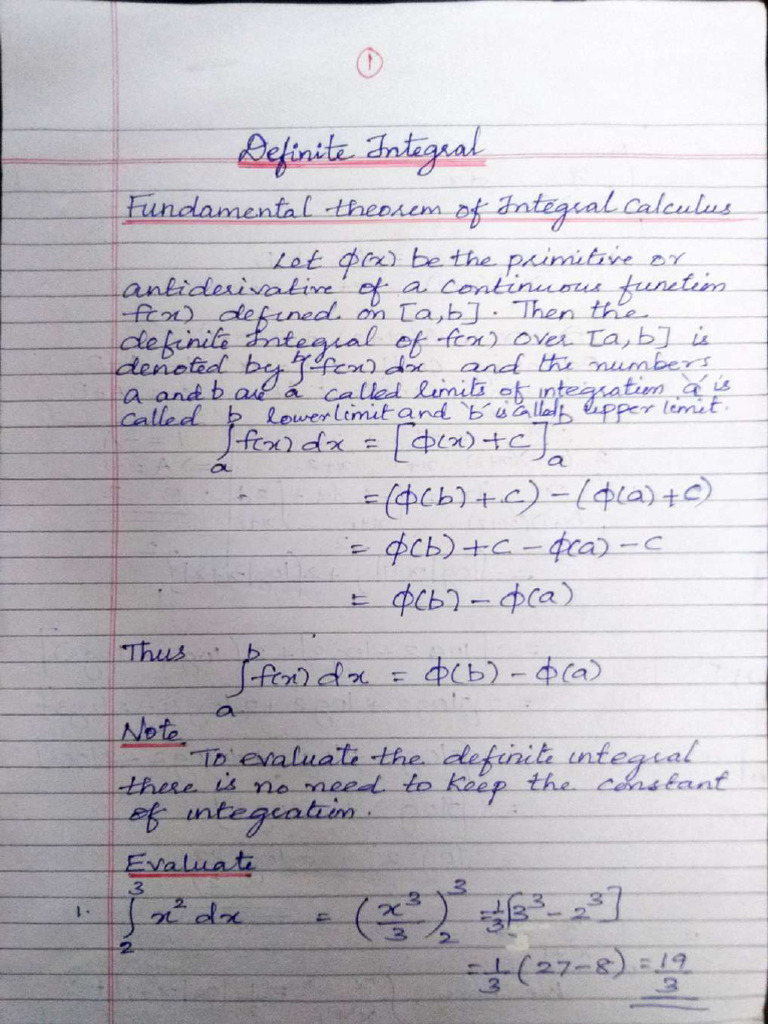 1
Definite Integral
Fundamental theorem of Integral Calculus
Let ϕ(x) be the primitive or
antiderivative of a continuous function
f(x) defined on [a,b]. Then the
definite Integral of f(x) over [a,b] is
denoted by ∫_a^b f(x) dx and the numbers
a and b are called limits of integration 'a' is
called lower limit and 'b' is called upper limit.
∫_a^b f(x) dx = [ϕ(x) + C]_a^b
= (ϕ(b) + c) - (ϕ(a) + c)
= ϕ(b) + c - ϕ(a) - c
= ϕ(b) - ϕ(a)
Thus ∫_a^b f(x) dx = ϕ(b) - ϕ(a)
Note
To evaluate the definite integral
there is no need to keep the constant
of integration.
Evaluate
1. ∫_2^3 x² dx = (x³/3)_2^3 = 1/3 [3³ - 2³]
= 1/3 (27-8) = 19/3